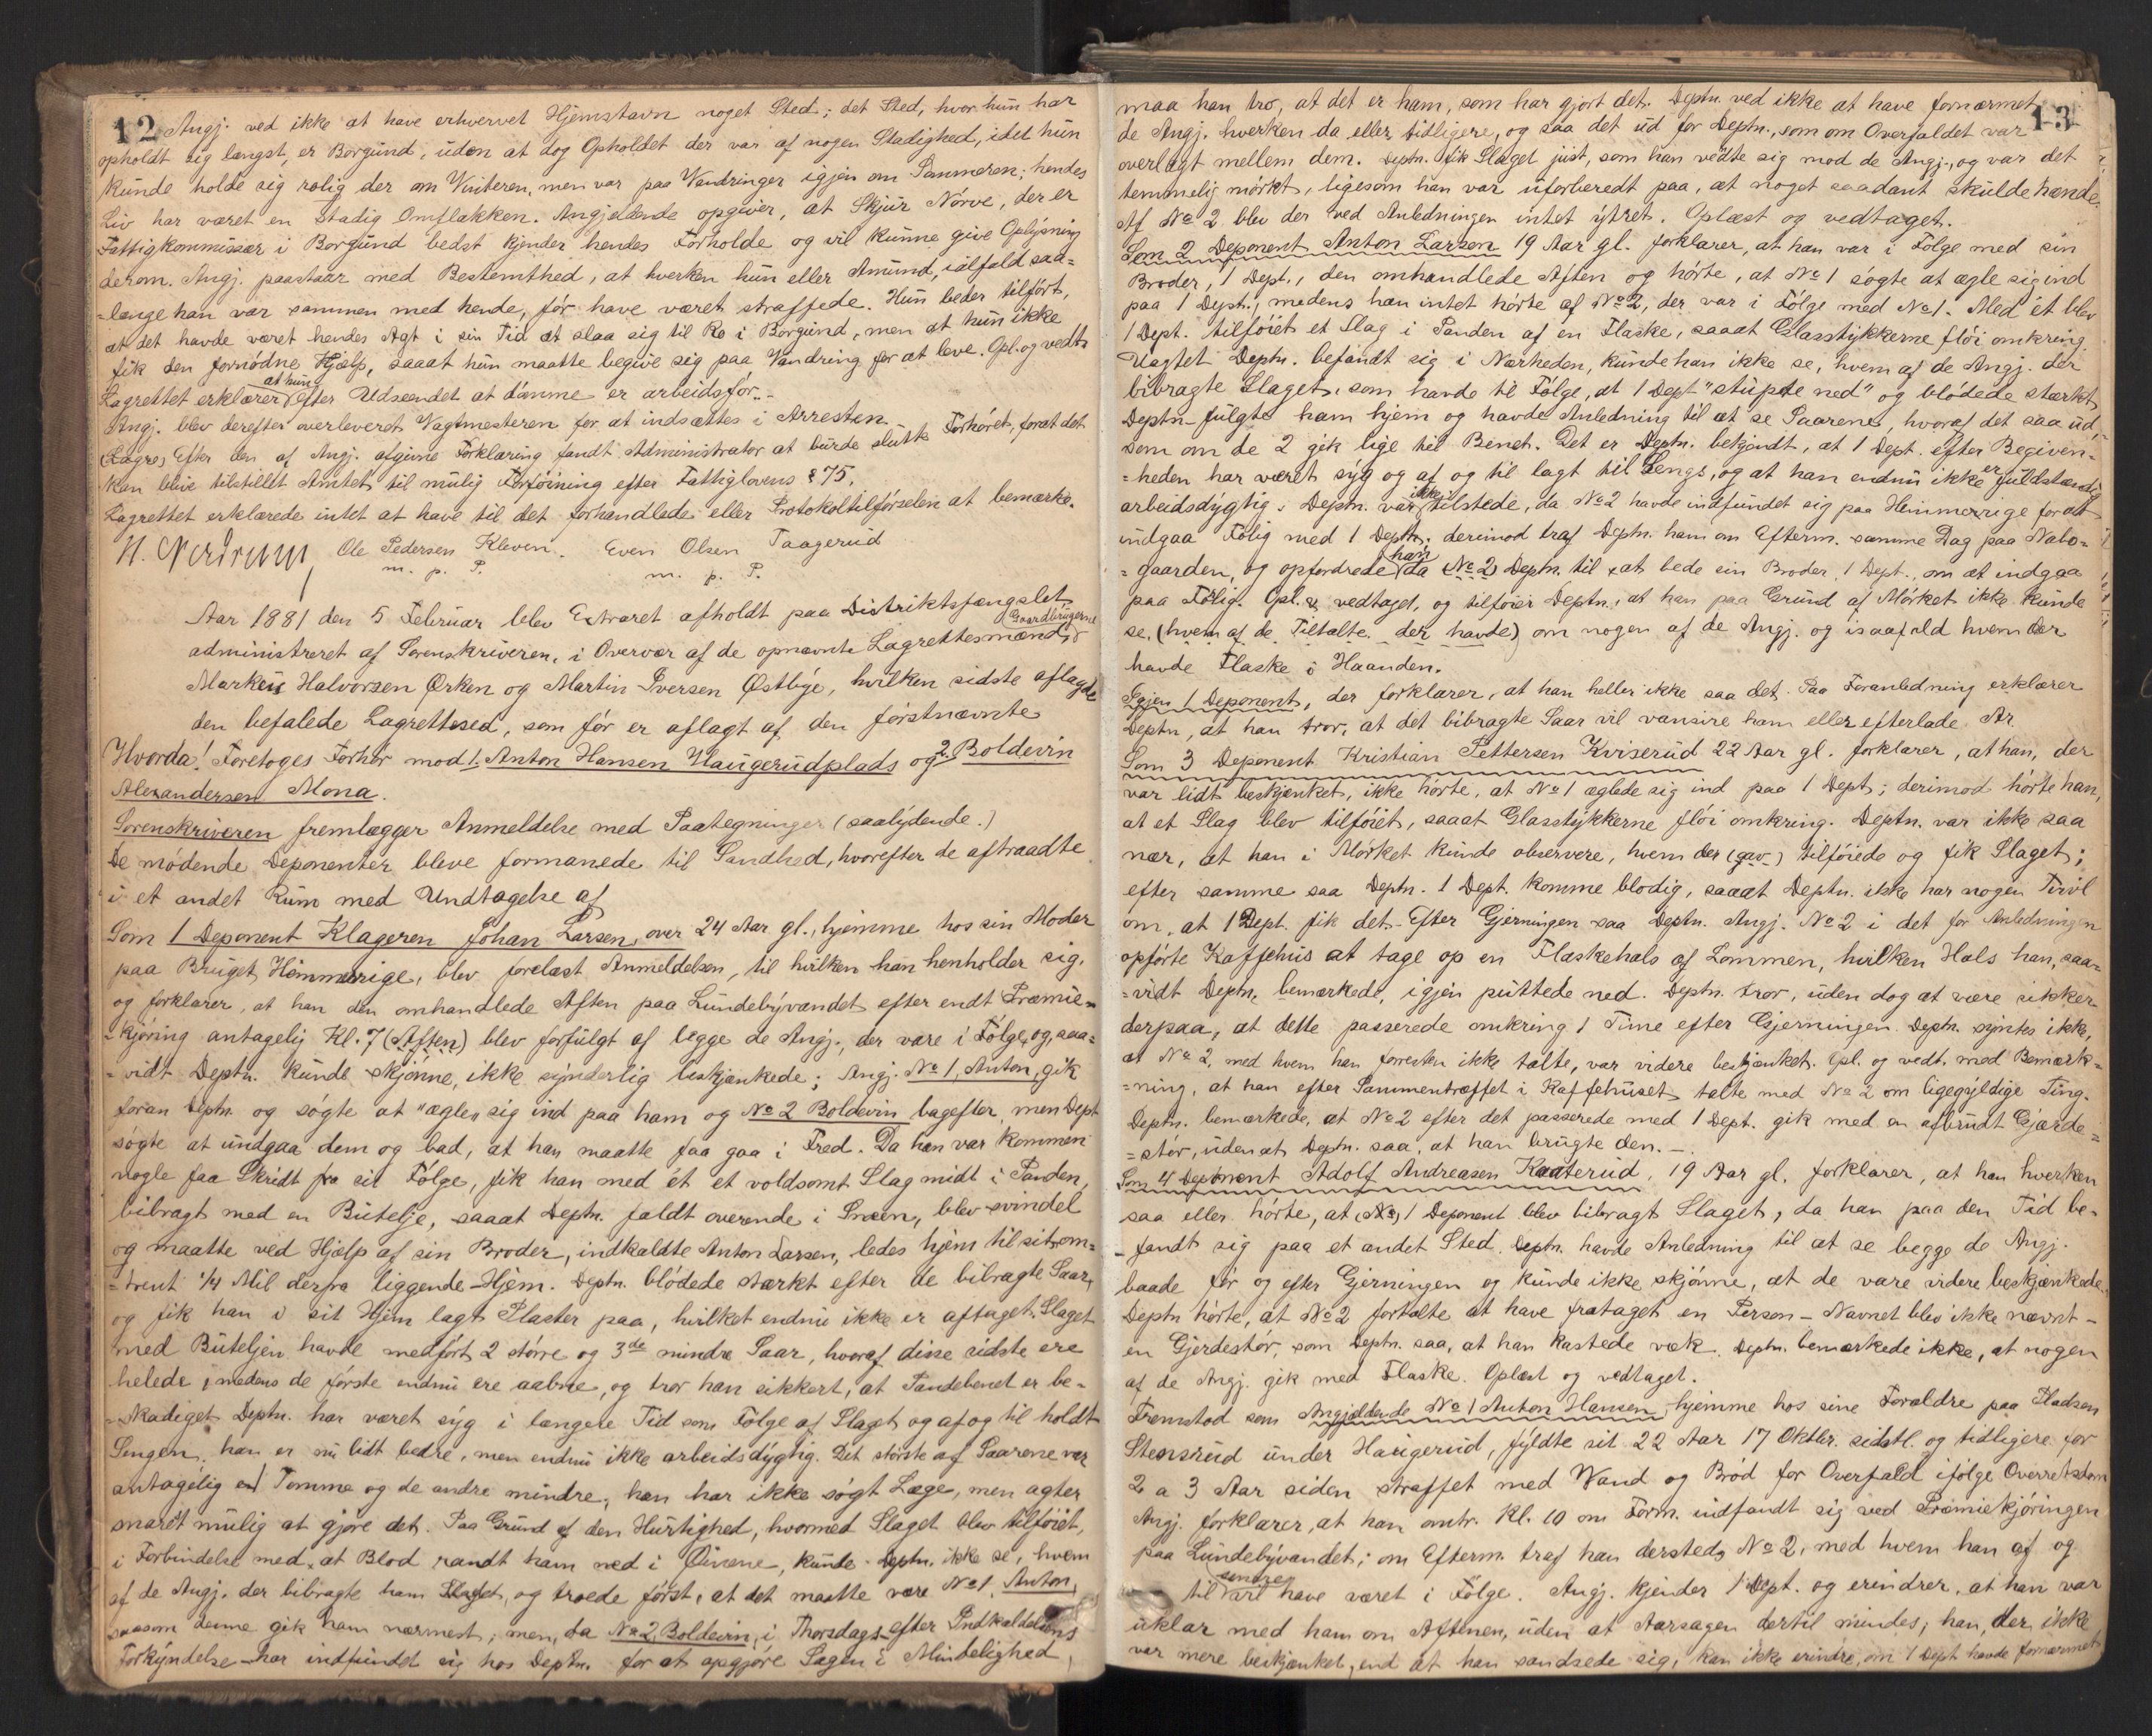 12 Angj. ved ikke at have erhvervet Hjemstavn noget Sted; det Sted, hvor hun har
opholdt sig længst, er Borgund, uden at dog Opholdet der var af nogen Stadighed, idet hun
kunde holde sig rolig der om Vinteren, men var paa Vandringer igjen om Sommeren; hendes
Liv har været en stadig Omflakken. Angjeldende opgiver, at Skjur Nörve, der er
Fattigkommissær i Borgund bedst kjender hendes Forholde og vil kunne give Oplysning
derom. Angj. paastaar med Bestemthed, at hverken hun eller Amund, ialfald saa-
-længe han var sammen med hende, för have været straffede. Hun beder tilfört,
at det havde været hendes Agt i sin Tid at slaa sig til Ro i Borgund, men at hun ikke
fik den fornödne Hjælp, saaat hun maatte begive sig paa Vandring for at leve. Opl. og vedt.
Lagrettet erklærer at hun efter Udseendet at dömme er arbeidsför.-
Angj. blev derefter overleveret Vagtmesteren for at indsættes i Arresten.
(Lagre) Efter den af Angj. afgivne Forklaring fandt Administrator at burde slutte Forhöret, forat det
kan blive tilstillet Amtet til mulig Forföining efter Fattiglovens § 75.
Lagrettet erklærede intet at have til det forhandlede eller Protokoltilförselen at bemærke.
N. Nerdrum, Ole Pedersen Kleven. Even Olsen Taagerud
m. p. P. m. p. P.
Aar 1881 den 5 Februar blev Extraret afholdt paa Distriktsfængslet
administreret af Sorenskriveren, i Overvær af de opnævnte Lagrettesmænd, Gaardbrugerne
Markus Halvorsen Ørken og Martin Iversen Østbye, hvilken sidste aflagde
den befalede Lagrettesed, som för er aflagt af den förstnævnte
Hvorda! Foretoges Forhör mod 1. Anton Hansen Haugerudplads og 2. Boldevin
Alexandersen Mona.
Sorenskriveren fremlægger Anmeldelse med Paategninger (saalydende.)
De mödende Deponenter bleve formanede til Sandhed, hvorefter de aftraadte
i et andet Rum med Undtagelse af
Som 1 Deponent Klageren Johan Larsen, over 24 Aar gl., hjemme hos sin Moder
paa Bruget Himmerige, blev forelæst Anmeldelsen, til hvilken han henholder sig,
og forklarer, at han den omhandlede Aften paa Lundebyvandet efter endt Præmie-
-kjöring antagelig Kl. 7 (Aften) blev forfulgt af begge de Angj., der vare i Fölge, og, saa-
-vidt Deptn. kunde skjönne, ikke synderlig beskjænkede; Angj. No 1, Anton, gik
foran Deptn. og sögte at "ægle" sig ind paa ham og No 2 Boldevin bagefter, men Dept.
sögte at undgaa dem og bad, at han maatte faa gaa i Fred. Da han var kommen
nogle faa Skridt fra sit Fölge, fik han med ét et voldsomt Slag midt i Panden,
bibragt med en Butelje, saaat Deptn. faldt overende i Sneen, blev svindel
og maatte ved Hjælp af sin Broder, indkaldte Anton Larsen, ledes hjem til sit om-
-trent 1/4 Mil derfra liggende Hjem. Deptn. blödede stærkt efter de bibragte Saar,
og fik han i sit Hjem lagt Plaster paa, hvilket endnu ikke er aftaget. Slaget
med Buteljen havde medfört 2 större og 3de mindre Saar, hvoraf disse sidste ere
helede, medens de förste endnu ere aabne, og tror han sikkert, at Pandebenet er be-
-skadiget. Deptn. har været syg i længere Tid som Fölge af Slaget og af og til holdt
Sengen, han er nu lidt bedre, men endnu ikke arbeidsdygtig. Det störste af Saarene var
antagelig en Tomme og de andre mindre, han har ikke sögt Læge, men agter
snarest mulig at gjöre det. Paa Grund af den Hurtighed, hvormed Slaget blev tilföiet,
i Forbindelse med, at Blod randt ham ned i Öinene, kunde Deptn. ikke se, hvem
af de Angj. der bibragte ham Slaget, og troede först, at det maatte være No 1, Anton,
saasom denne gik ham nærmest; men, da No 2, Boldevin, i Thorsdags efter Indkaldelsens
Forkyndelse har indfundet sig hos Deptn. for at opgjöre Sagen i Mindelighed,
13
maa han tro, at det er ham, som har gjort det. Deptn. ved ikke at have fornærmet
de Angj. hverken da eller tidligere, og saa det ud for Deptn., som om Overfaldet var
overlagt mellem dem. Deptn. fik Slaget just, som han vedte sig mod de Angj., og var det
temmelig mörkt, ligesom han var uforberedt paa, at noget saadant skulde hænde.
Af No 2 blev der ved Anledningen intet ytret. Oplæst og vedtaget.
Som 2 Deponent Anton Larsen 19 Aar gl. forklarer, at han var i Fölge med sin
Broder, 1 Dept., den omhandlede Aften og hörte, at No 1 sögte at ægle sig ind
paa 1 Dept., medens han intet hörte af No 2, der var i Fölge med No 1. Med ét blev
1 Dept. tilföiet et Slag i Panden af en Flaske, saaat Glasstykkerne flöi omkring.
Uagtet Deptn. befandt sig i Nærheden, kunde han ikke se, hvem af de Angj. der
bibragte Slaget, som havde til Fölge, at 1 Dept "stupte ned" og blödede stærkt.
Deptn. fulgte ham hjem og havde Anledning til at se Saarene, hvoraf det saa ud,
som om de 2 gik lige til Benet. Det er Deptn. bekjendt, at 1 Dept. efter Begiven-
-heden har været syg og af og til lagt til Sengs, og at han endnu ikke er fuldstændig
arbeidsdygtig. Deptn. var ikke tilstede, da No 2 havde indfundet sig paa Himmerige for at
indgaa Forlig med 1 Deptn., derimod traf Deptn. ham om Efterm. samme Dag paa Nabo-
-gaarden, og opfordrede han da (No 2) Deptn. til at bede sin Broder, 1 Dept., om at indgaa
paa Forlig. Opl. & vedtaget, og tilföier Deptn., at han paa Grund af Mörket ikke kunde
se, (hvem af de Tiltalte der havde) om nogen af de Angj. og isaafald hvem der
havde Flaske i Haanden.
Igjen 1 Deponent, der forklarer, at han heller ikke saa det. Paa Foranledning erklærer
Deptn., at han tror, at det bibragte Saar vil vansire ham eller efterlade Ar.
Som 3 Deponent Kristian Pettersen Kviserud 22 Aar gl. forklarer, at han, der
var lidt beskjænket, ikke hörte, at No 1 æglede sig ind paa 1 Dept; derimod hörte han,
at et Slag blev tilföiet, saaat Glasstykkerne flöi omkring. Deptn. var ikke saa
nær, at han i Mörket kunde observere, hvem der (gav) tilföiede og fik Slaget;
efter samme saa Deptn. 1 Dept. komme blodig, saaat Deptn. ikke har nogen Tvivl
om, at 1 Dept. fik det. Efter Gjerningen saa Deptn. Angj. No 2 i det for Anledningen
opförte Kaffehus at tage op en Flaskehals af Lommen, hvilken Hals han, saa-
-vidt Deptn. bemærkede, igjen puttede ned. Deptn. tror, uden dog at være sikker
derpaa, at dette passerede omkring 1 Time efter Gjerningen. Deptn. syntes ikke,
at No 2, med hvem han forresten ikke talte, var videre beskjænket. Opl. og vedt. med Bemærk-
-ning, at han efter Sammentræffet i Kaffehuset talte med No 2 om ligegyldige Ting.
Deptn. bemærkede, at No 2 efter det passerede med 1 Dept. gik med en afbrudt Gjærde-
-stör, uden at Deptn. saa, at han brugte den.-
Som 4 Deponent Adolf Andreasen Kaaterud, 19 Aar gl. forklarer, at han hverken
saa eller hörte, at (No) 1 Deponent blev bibragt Slaget, da han paa den Tid be-
-fandt sig paa et andet Sted. Deptn. havde Anledning til at se begge de Angj.
baade för og efter Gjerningen og kunde ikke skjönne, at de vare videre beskjænkede.
Deptn hörte, at No 2 fortalte at have frataget en Person - Navnet blev ikke nævnt -
en Gjerdestör, som Deptn. saa, at han kastede væk. Deptn. bemærkede ikke, at nogen
af de Angj. gik med Flaske. Oplæst og vedtaget.
Fremstod som Angjældende No 1 Anton Hansen hjemme hos sine Forældre paa Pladsen
Stensrud under Haugerud, fyldte sit 22 Aar 17 Oktbr. sidstl. og tidligere for
2 a 3 Aar siden straffet med Vand og Bröd for Overfald ifölge Overretsdom
Angj. forklarer, at han omtr. Kl. 10 om Form. indfandt sig ved Præmiekjöringen
paa Lundebyvandet; om Efterm. traf han dersteds No 2, med hvem han af og
til senere vil have været i Fölge. Angj. kjender 1 Dept. og erindrer, at han var
uklar med ham om Aftenen, uden at Aarsagen dertil mindes; han, der ikke
var mere beskjænket, end at han sandsede sig, kan ikke erindre, om 1 Dept havde fornærmet